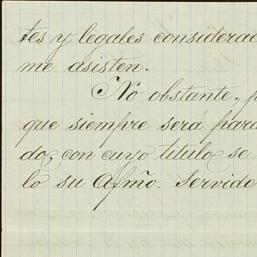 tes y legales considerac
me asisten.
No obstante, p
que siempre será para
do, con cuyo titulo se
lo su Afmo. Servido